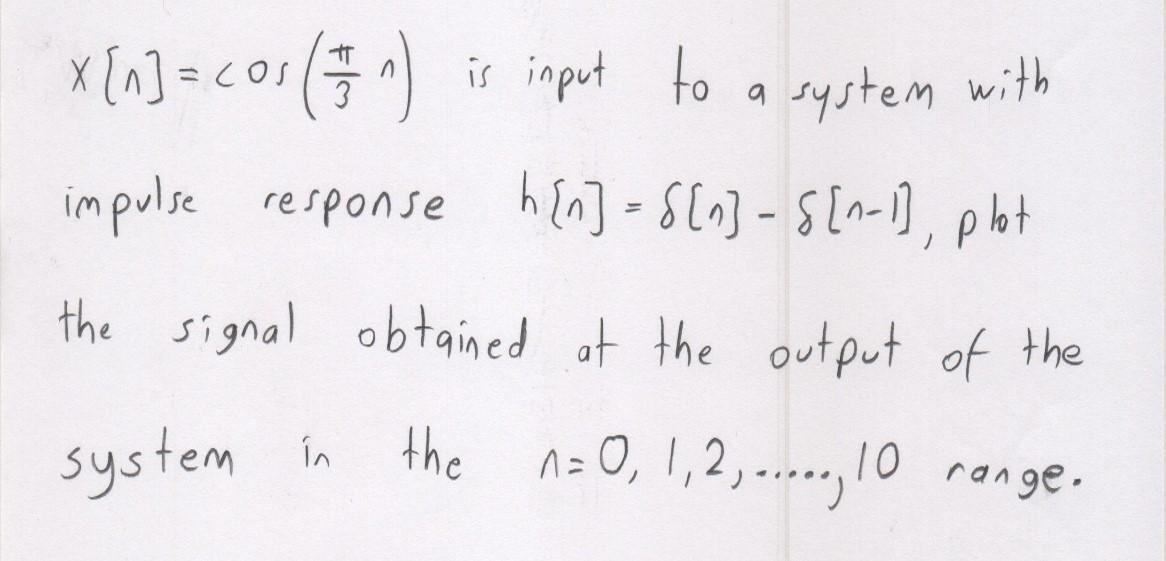 x[n] = cos(π/3 n) is input to a system with
impulse response h[n] = δ[n] - δ[n-1], plot
the signal obtained at the output of the
system in the n=0, 1, 2, ......, 10 range.